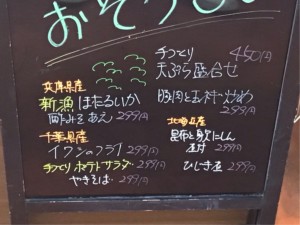 おそうざい
兵庫県産
新漁 ほたるいか
酢みそあえ 299円
千葉県産
イワシのフライ 299円
手づくりポテトサラダ
やきそば 299円
手づくり 450円
天ぷら盛合せ
豚肉と玉ねぎ炒め
299円
北海道産
昆布と身欠にしん
ひじき豆 299円